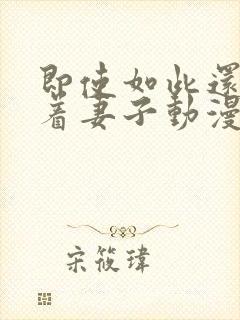 即使如此還
着妻子動漫
宋筱瑋